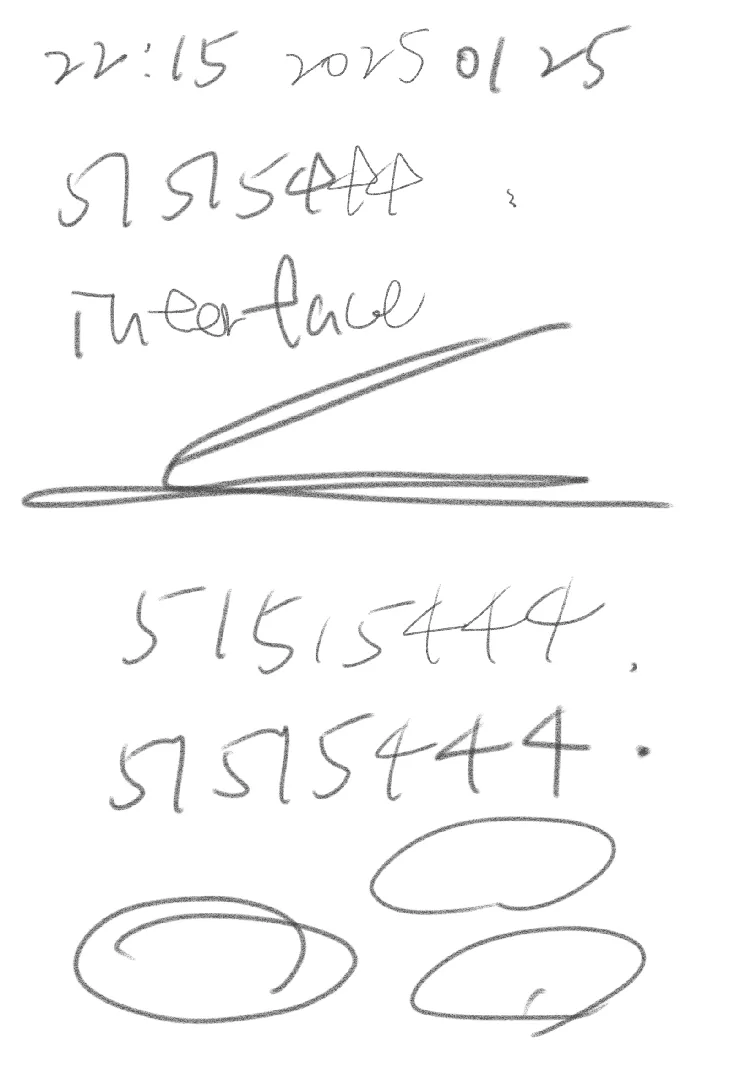 22:15 2025 01 25
51515444
interface
51515444.
51515444.